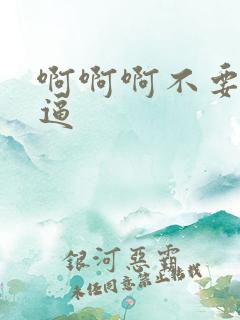 啊啊啊不要
逼
银河恶霸
未经同意禁止转载